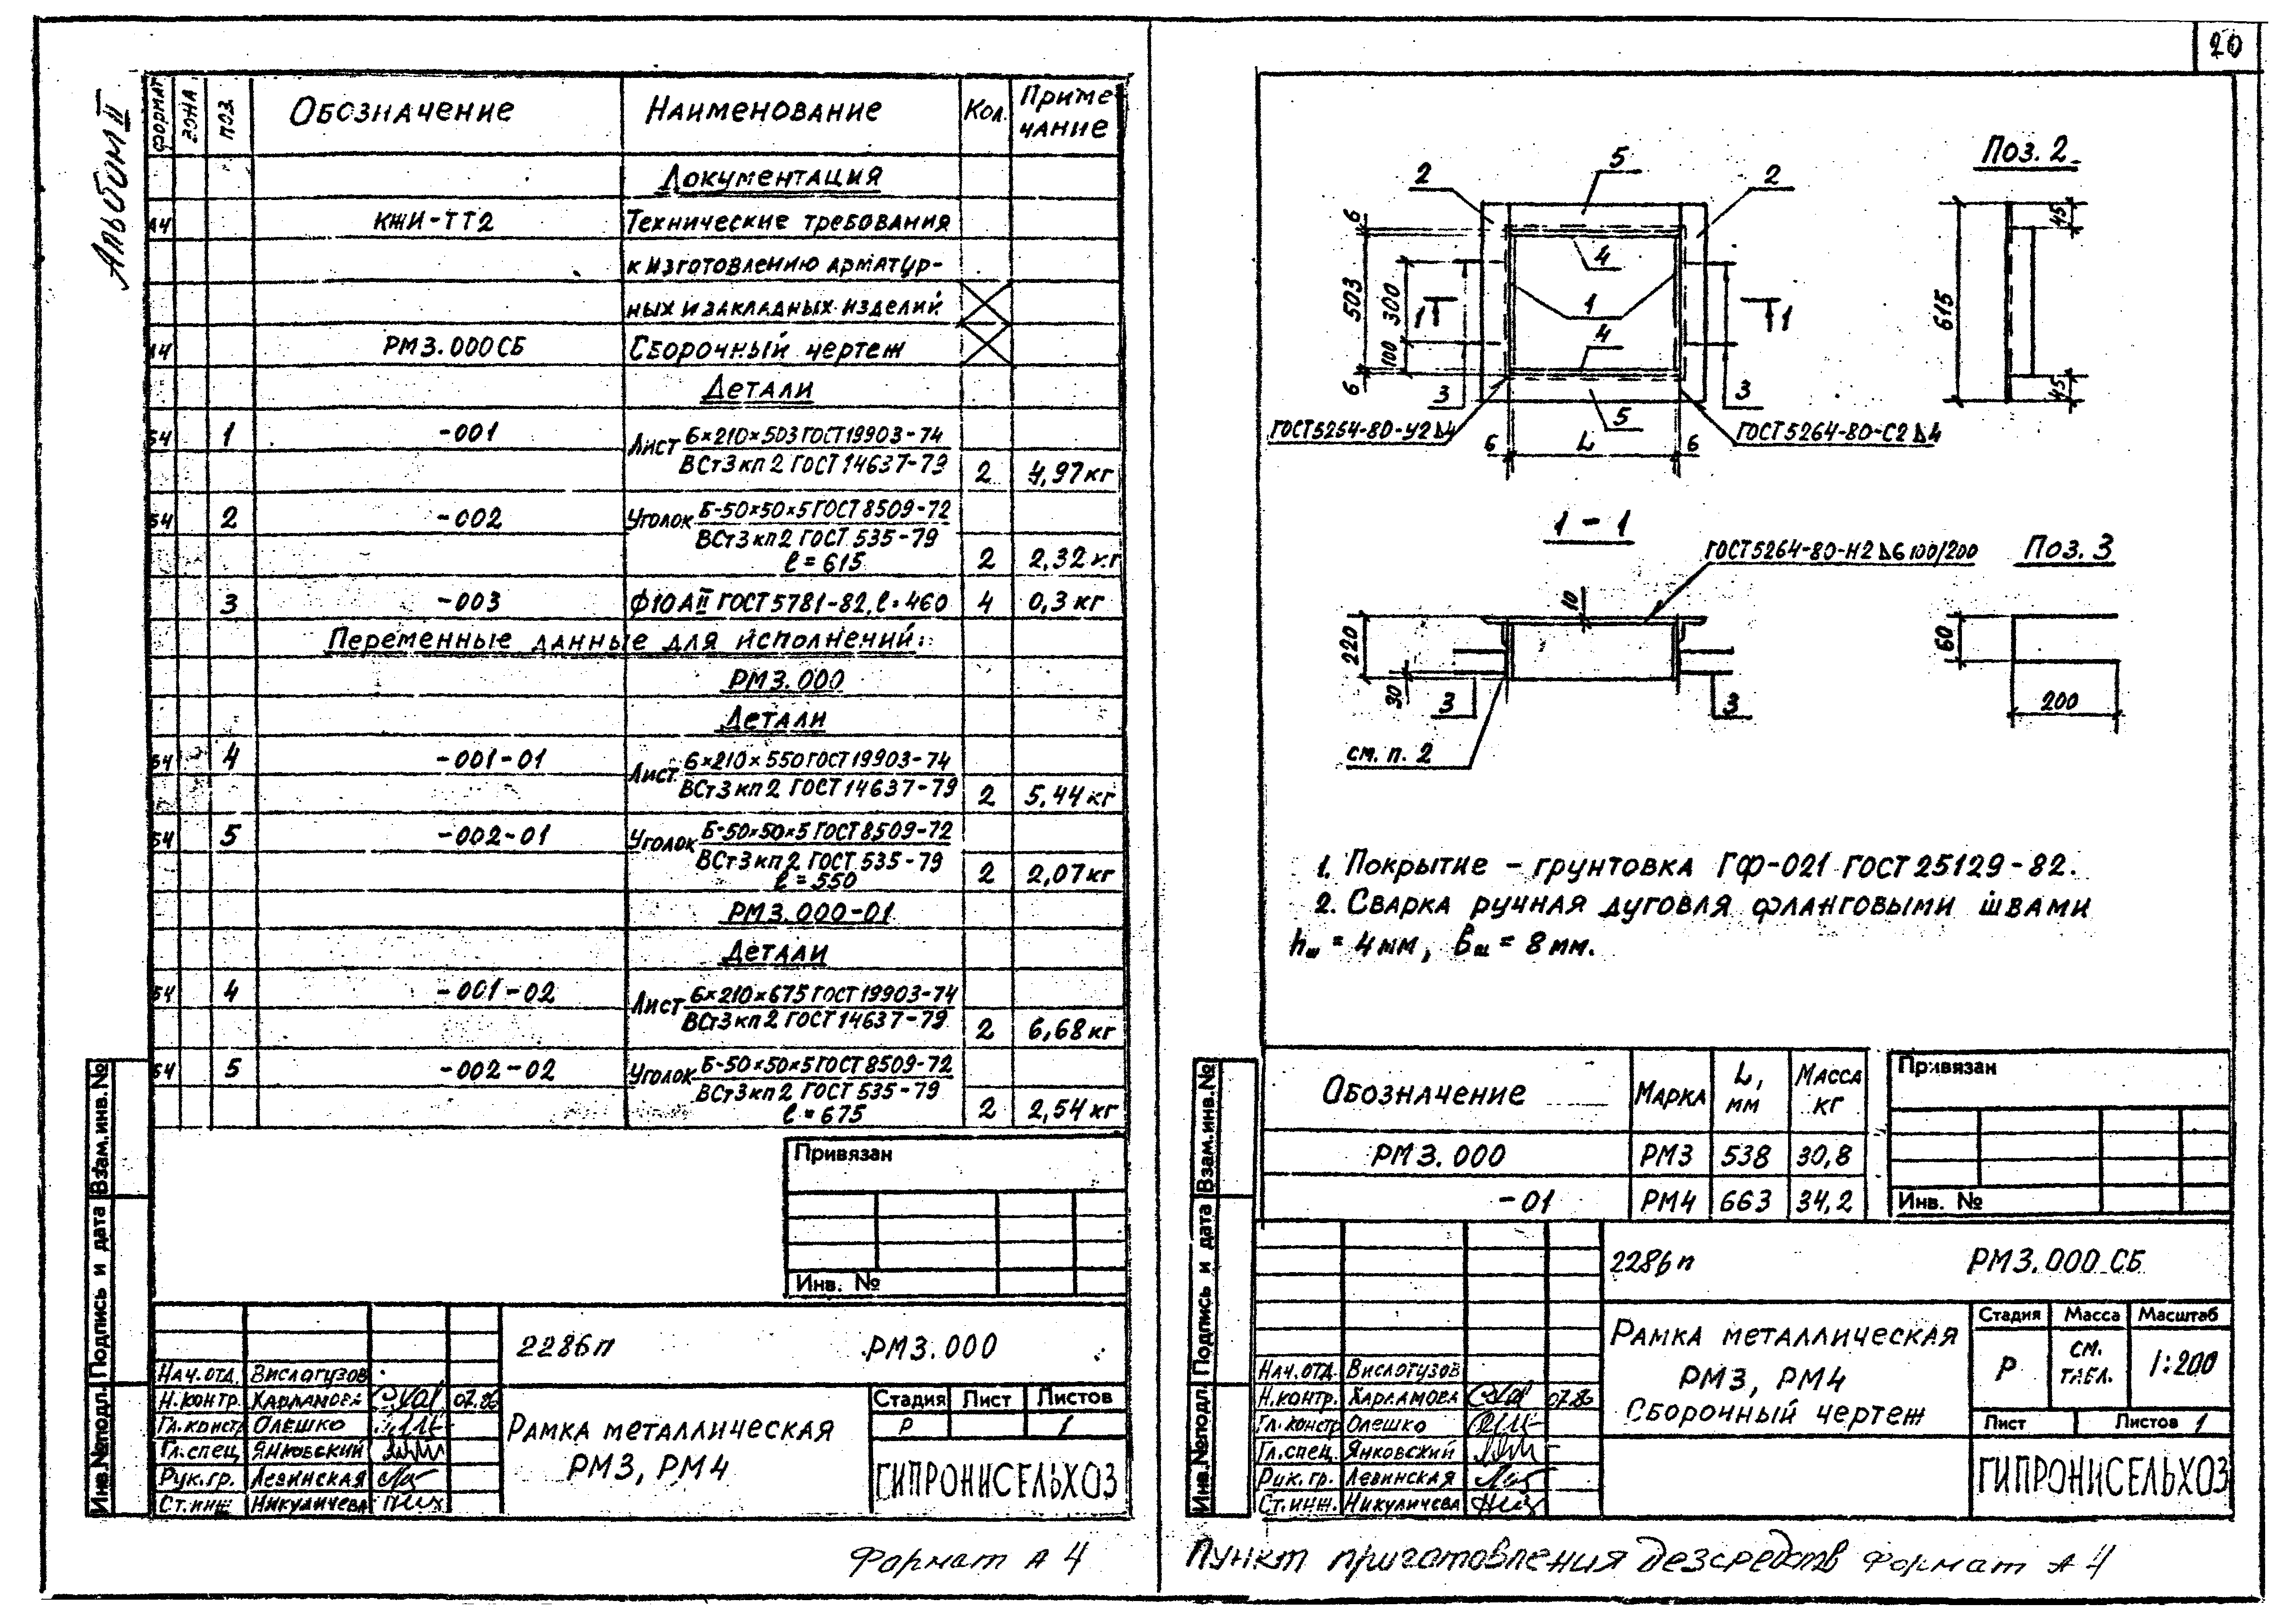 20
Альбом II
Формат Зона Поз. Обозначение Наименование Кол. Приме-
чание
Документация
А4 КЖИ-ТТ2 Технические требования
к изготовлению арматур-
ных и закладных изделий
А4 РМ3.000СБ Сборочный чертеж
Детали
Б4 1 -001 Лист 6×210×503 ГОСТ 19903-74
ВСт3кп2 ГОСТ 14637-79 2 4,97кг
Б4 2 -002 Уголок Б-50×50×5 ГОСТ 8509-72
ВСт3кп2 ГОСТ 535-79
l=615 2 2,32кг
3 -003 Ф10АII ГОСТ 5781-82, l=460 4 0,3кг
Переменные данные для исполнений:
РМ3.000
Детали
Б4 4 -001-01 Лист 6×210×550 ГОСТ 19903-74
ВСт3кп2 ГОСТ 14637-79 2 5,44кг
Б4 5 -002-01 Уголок Б-50×50×5 ГОСТ 8509-72
ВСт3кп2 ГОСТ 535-79
l=550 2 2,07кг
РМ3.000-01
Детали
Б4 4 -001-02 Лист 6×210×675 ГОСТ 19903-74
ВСт3кп2 ГОСТ 14637-79 2 6,68кг
Б4 5 -002-02 Уголок Б-50×50×5 ГОСТ 8509-72
ВСт3кп2 ГОСТ 535-79
l=675 2 2,54кг
Привязан
Инв. №
Инв.№подл. Подпись и дата Взам.инв.№
2286п РМ3.000
Нач.отд. Вислогузов
Н.контр. Харламова 07.86
Гл.констр Олешко
Гл.спец. Янковский
Рук.гр. Левинская
Ст.инж Никуличева
Рамка металлическая
РМ3, РМ4
Стадия Лист Листов
Р 1
ГИПРОНИСЕЛЬХОЗ
Формат А4
2 5 2 Поз. 2
6 503 6 300 100
4 1 4
1 1
3 5 3
615 45 45
ГОСТ 5264-80-У2⊿4 ГОСТ 5264-80-С2⊿4
6 L 6
1-1
ГОСТ 5264-80-Н2⊿6 100/200 Поз. 3
220 30 10
3 3
60 200
см. п. 2
1. Покрытие - грунтовка ГФ-021 ГОСТ 25129-82.
2. Сварка ручная дуговая фланговыми швами
hш = 4мм, bш = 8мм.
Обозначение Марка L, мм Масса кг
РМ3.000 РМ3 538 30,8
-01 РМ4 663 34,2
Привязан
Инв. №
Инв.№подл. Подпись и дата Взам.инв.№
2286п РМ3.000 СБ
Нач.отд. Вислогузов
Н.контр. Харламова 07.86
Гл.констр Олешко
Гл.спец. Янковский
Рук.гр. Левинская
Ст.инж. Никуличева
Рамка металлическая
РМ3, РМ4
Сборочный чертеж
Стадия Масса Масштаб
Р см. табл. 1:200
Лист Листов 1
ГИПРОНИСЕЛЬХОЗ
Пункт приготовления дезсредств Формат А4